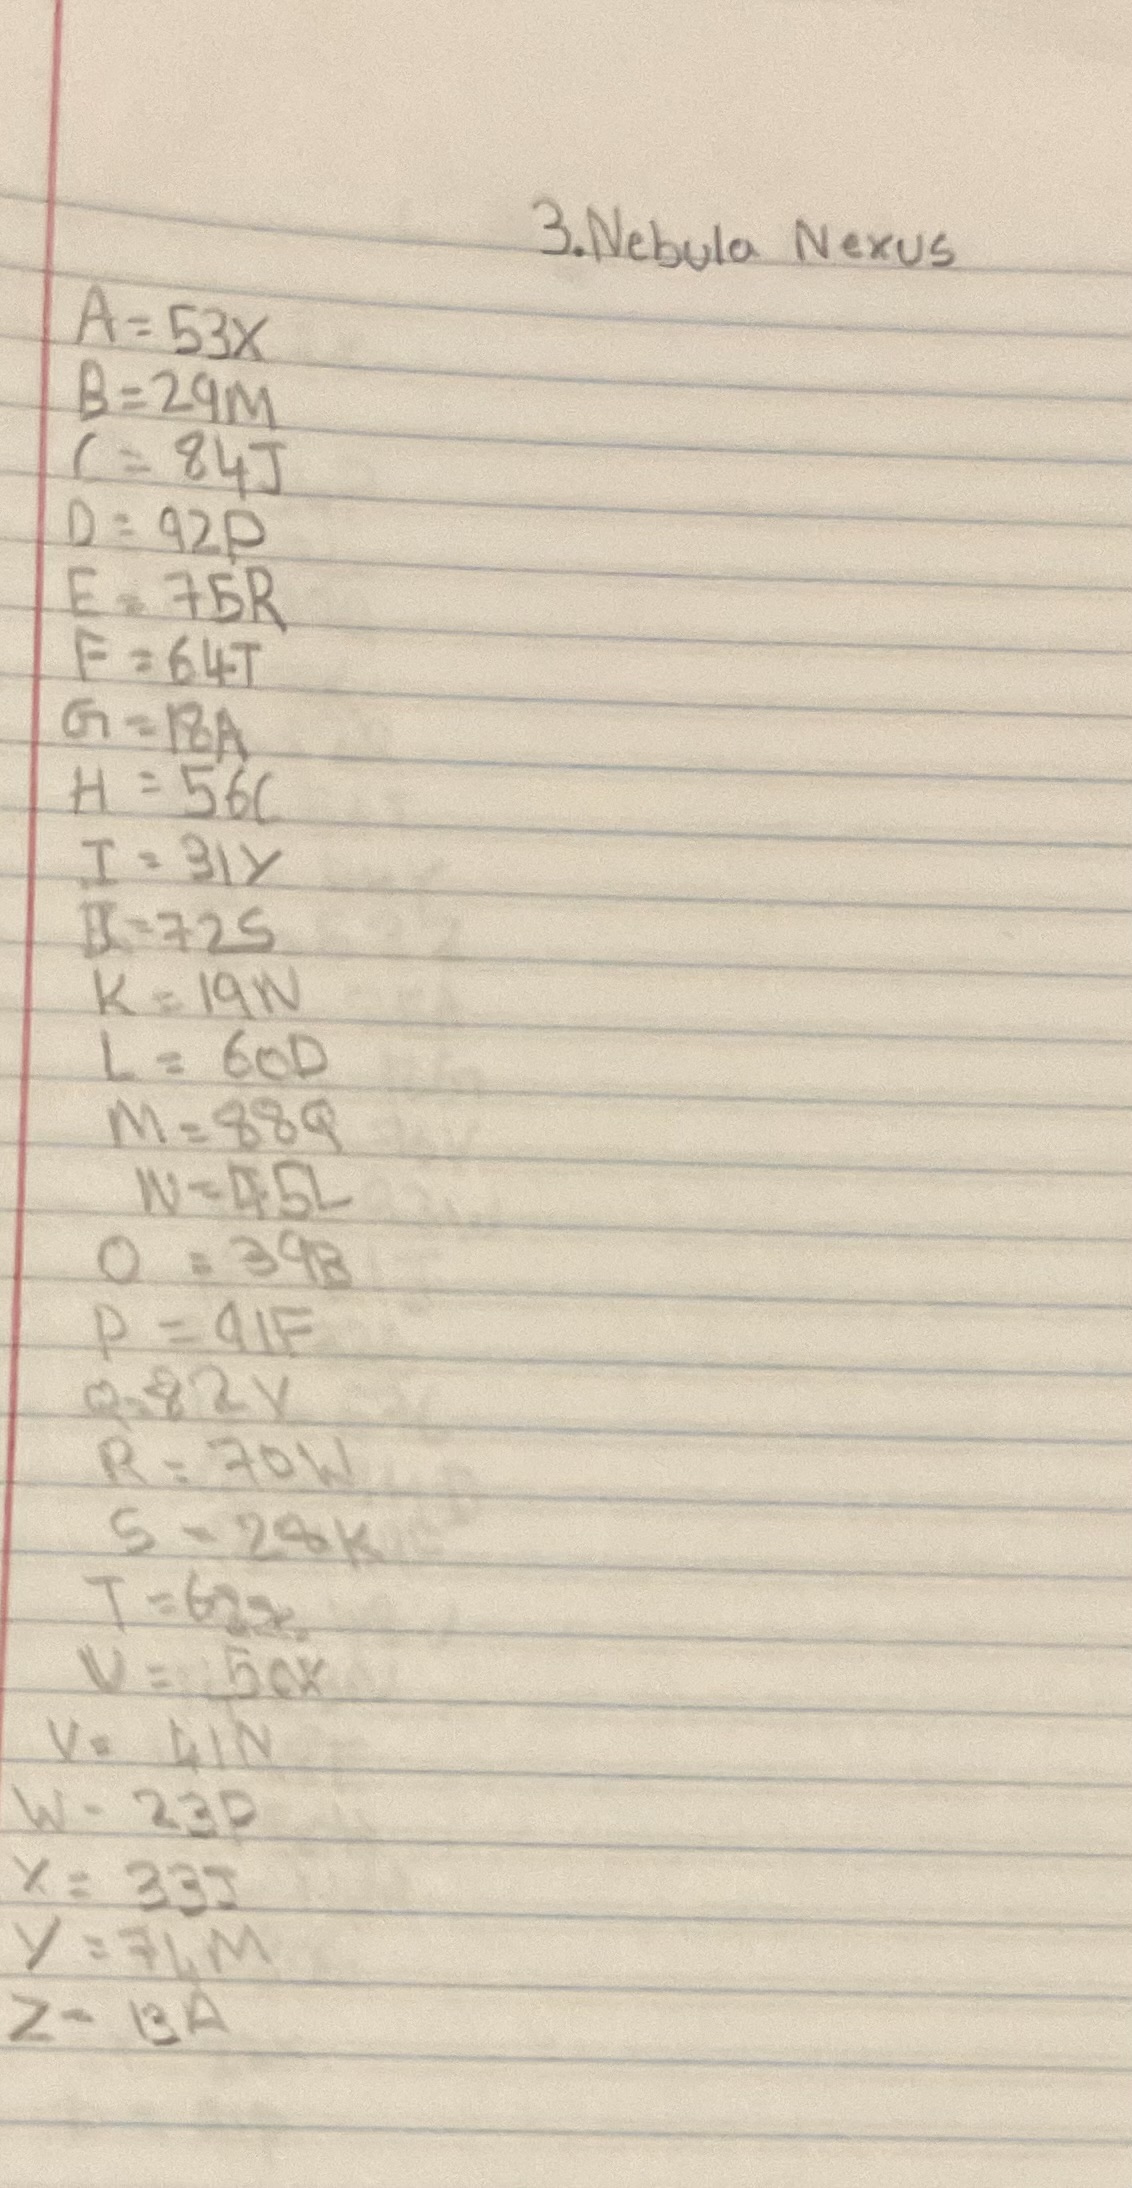 3. Nebula Nexus
A = 53X
B = 29M
C = 84J
D = 92P
E = 75R
F = 64T
G = 18A
H = 56C
I = 31Y
J = 72S
K = 19N
L = 60D
M = 88Q
N = 45L
O = 39B
P = 91F
Q = 82V
R = 70W
S = 28K
T =
U = 50X
V = 41N
W - 23P
X = 33J
Y = 74M
Z - 13A